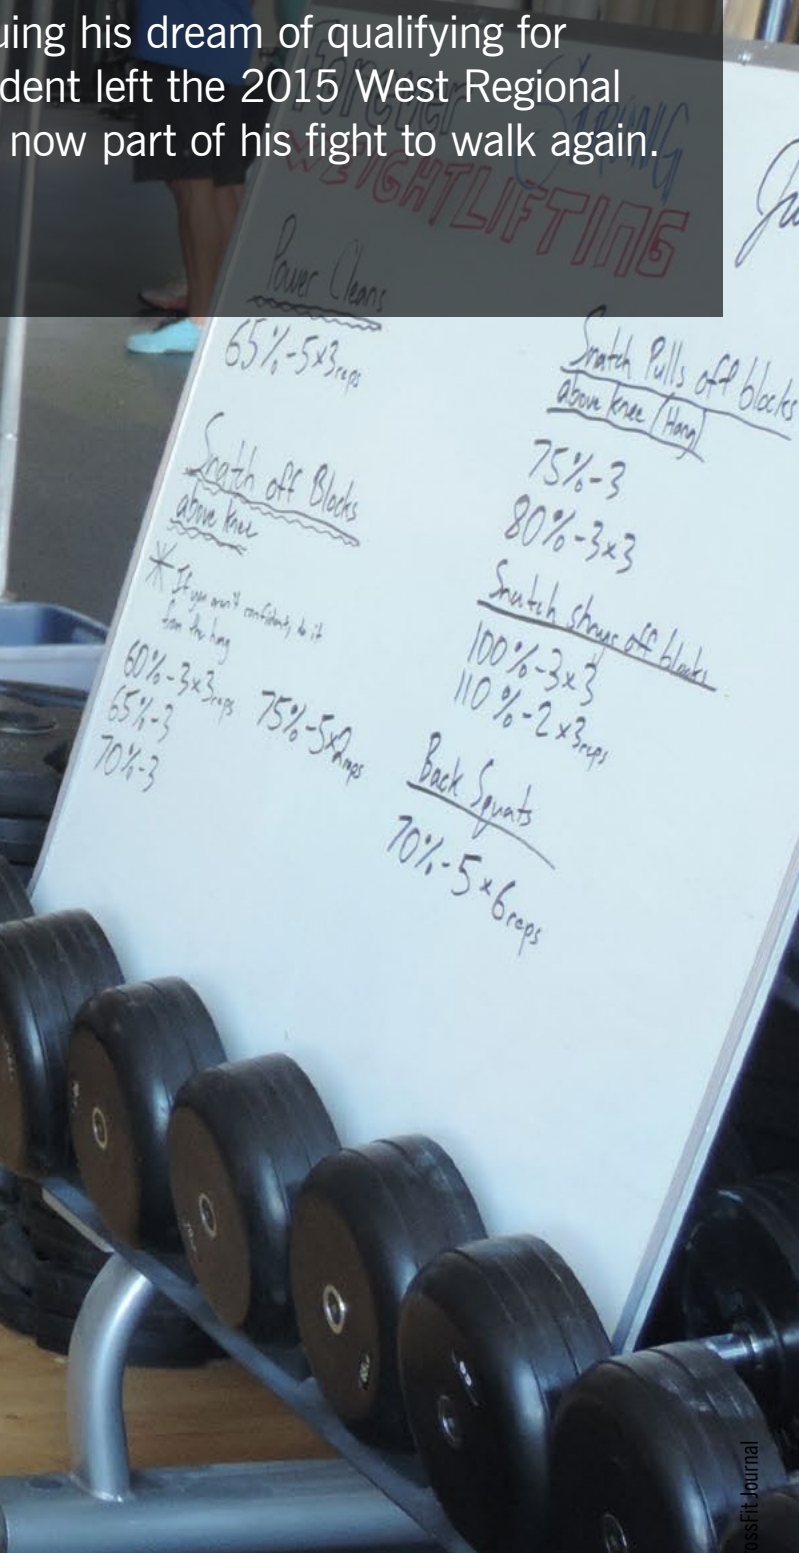 uing his dream of qualifying for
dent left the 2015 West Regional
now part of his fight to walk again.
Forever STRONG
WEIGHTLIFTING
Ju
Power Cleans
65%-5x3reps
Snatch off Blocks
above knee
* If you aren't confident, do it
from the hang
60%-3x3reps
65%-3
70%-3
75%-5x2reps
Snatch Pulls off blocks
above knee (Hang)
75%-3
80%-3x3
Snatch shrugs off blocks
100%-3x3
110%-2x3reps
Back Squats
70%-5x6reps
ossFit Journal